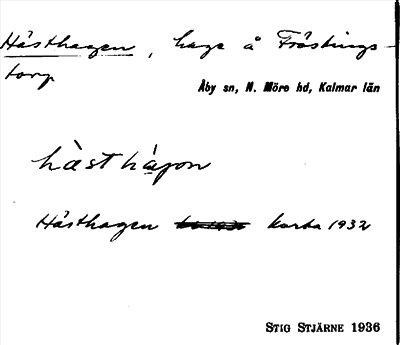 Hästhagen, hage å Fröstings-
torp
Åby sn, N. Möre hd, Kalmar län
hàsthàgon
Hästhagen karta 1932
STIG STJÄRNE 1936